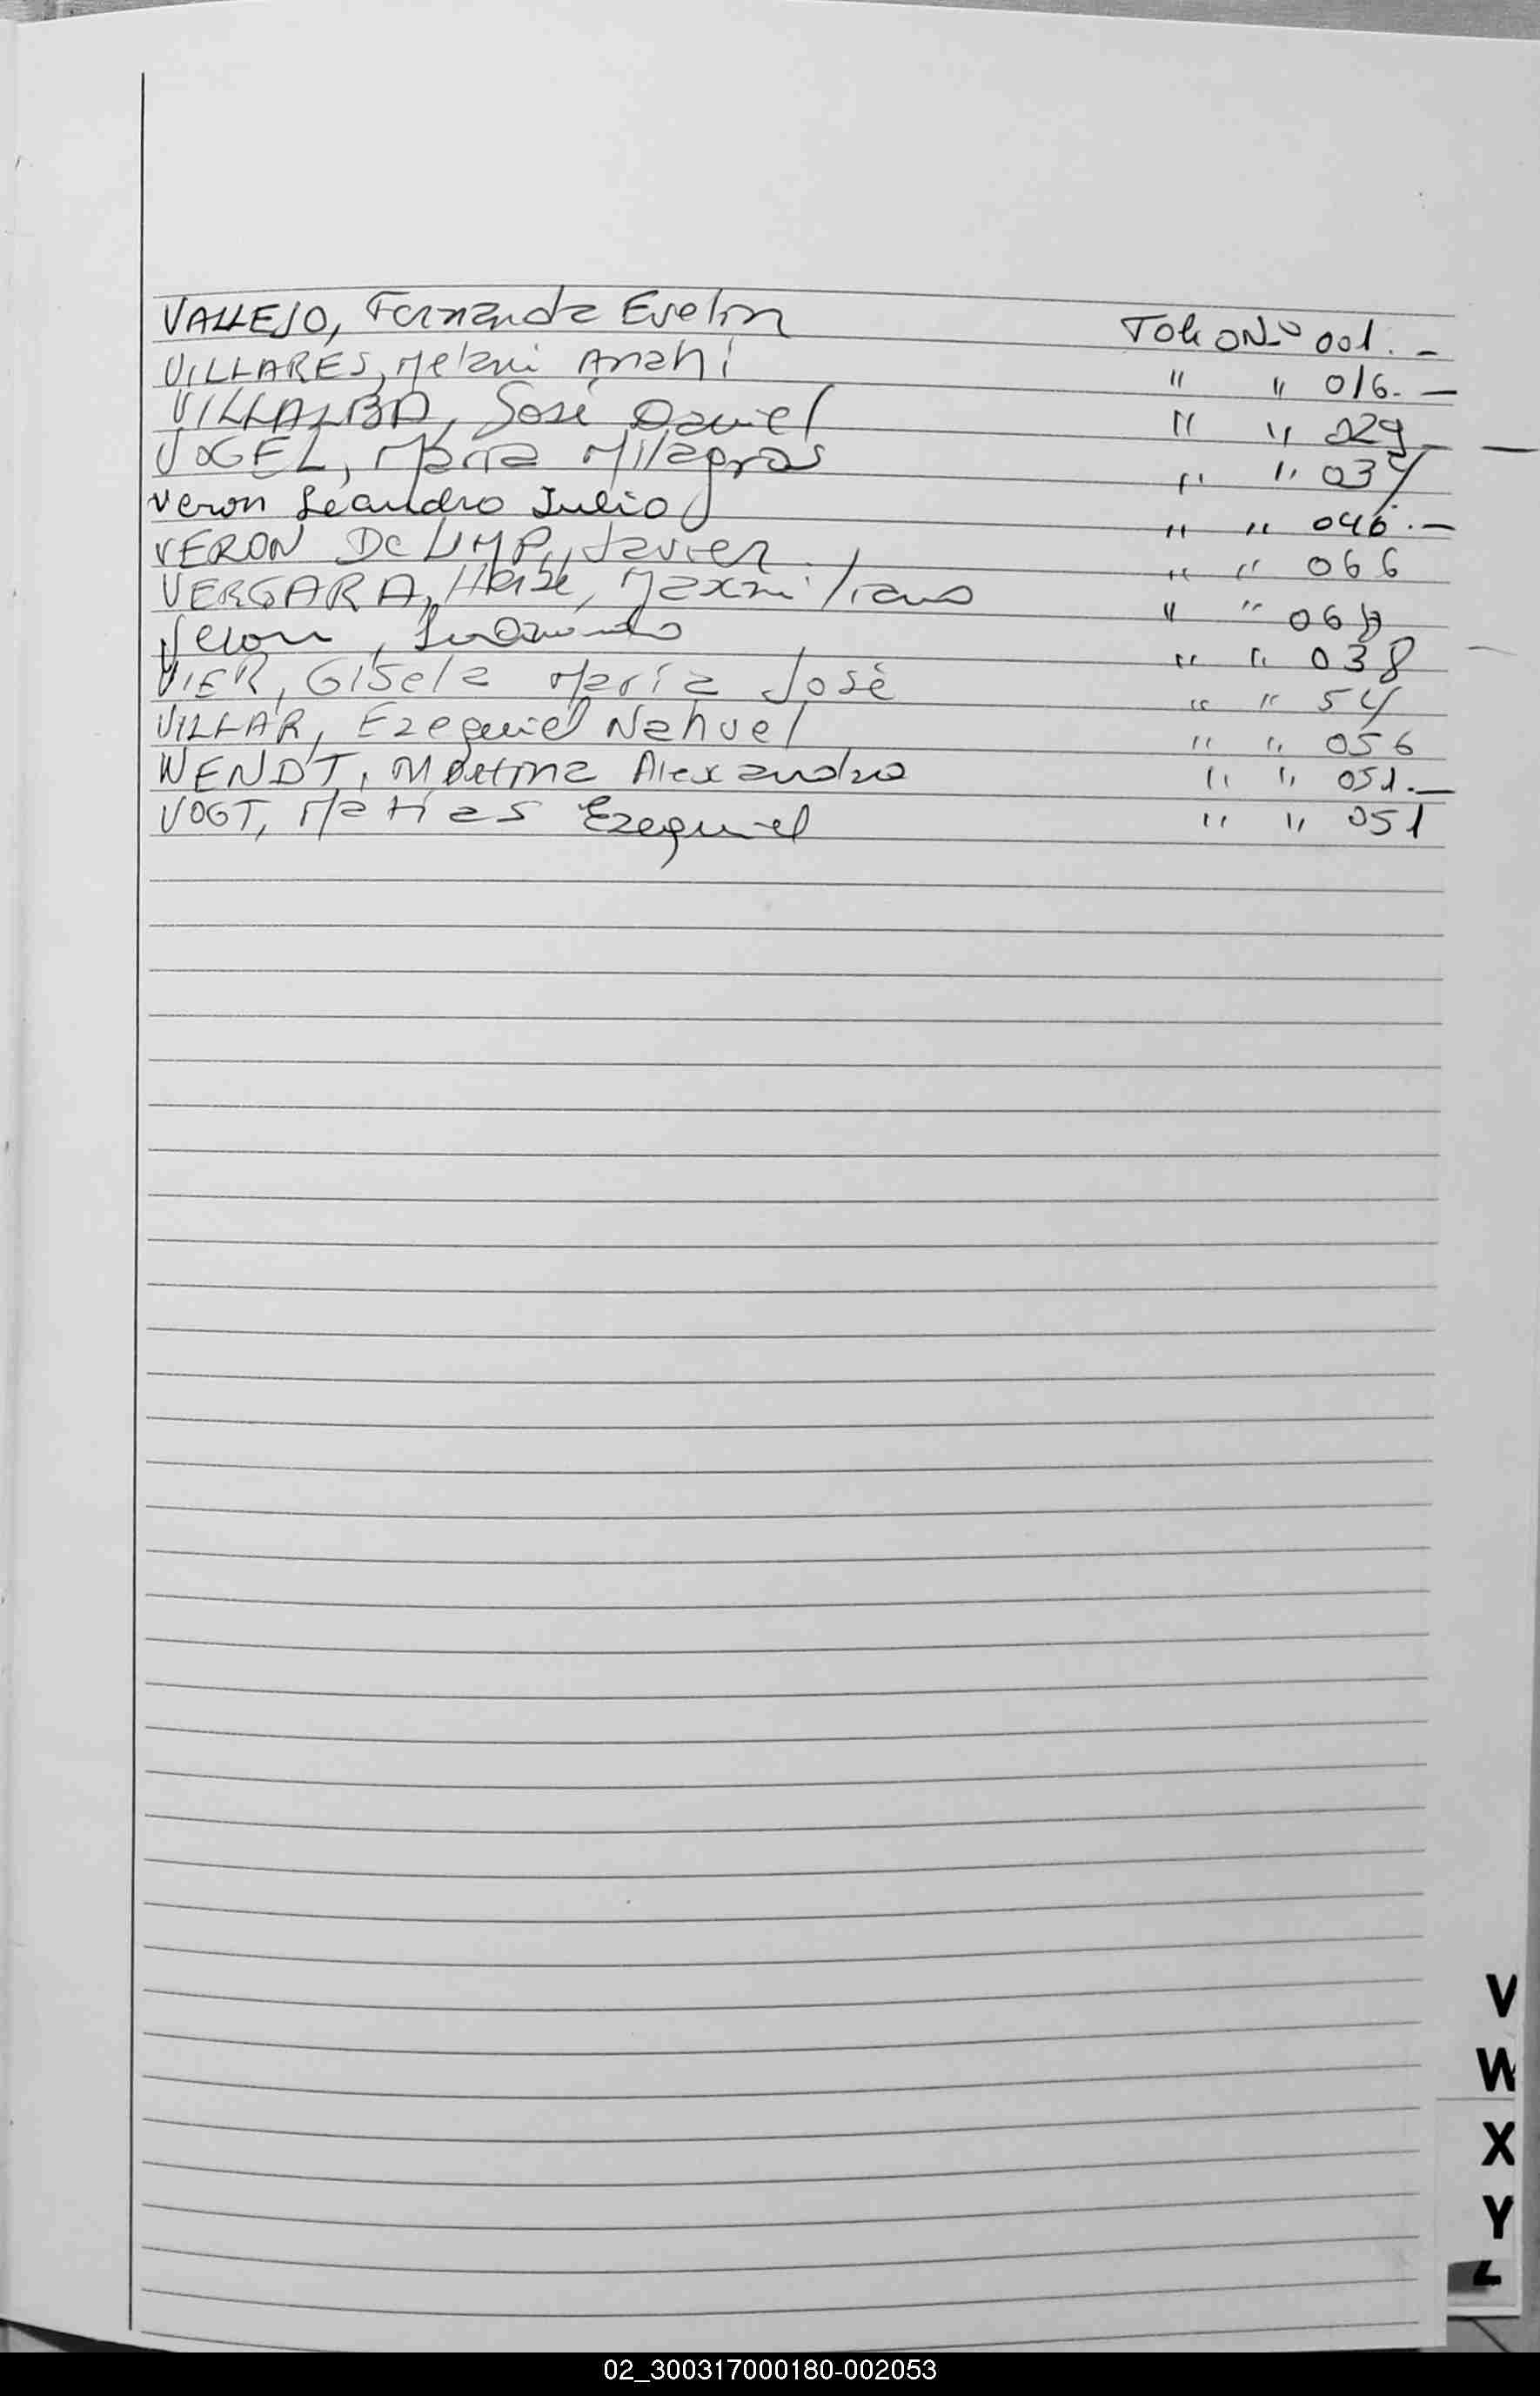 VALLEJO, Fernanda Evelin Folio Nº 001.-
VILLARES, Melani Anahi " " 016.-
VILLALBA, José Daniel " " 029-
VOGEL, María Milagros " " 034
Veron Leandro Julio " " 046.-
VERON De Javier " " 066
VERGARA, Maxmiliano " "
Veron, " " 038
VIER, Gisela María José " " 54
VILLAR, Ezequiel Nahuel " " 056
WENDT, Martina Alexandra " " 051.-
VOGT, Matías Ezequiel " " 051
V
W
X
Y
Z
02_300317000180-002053